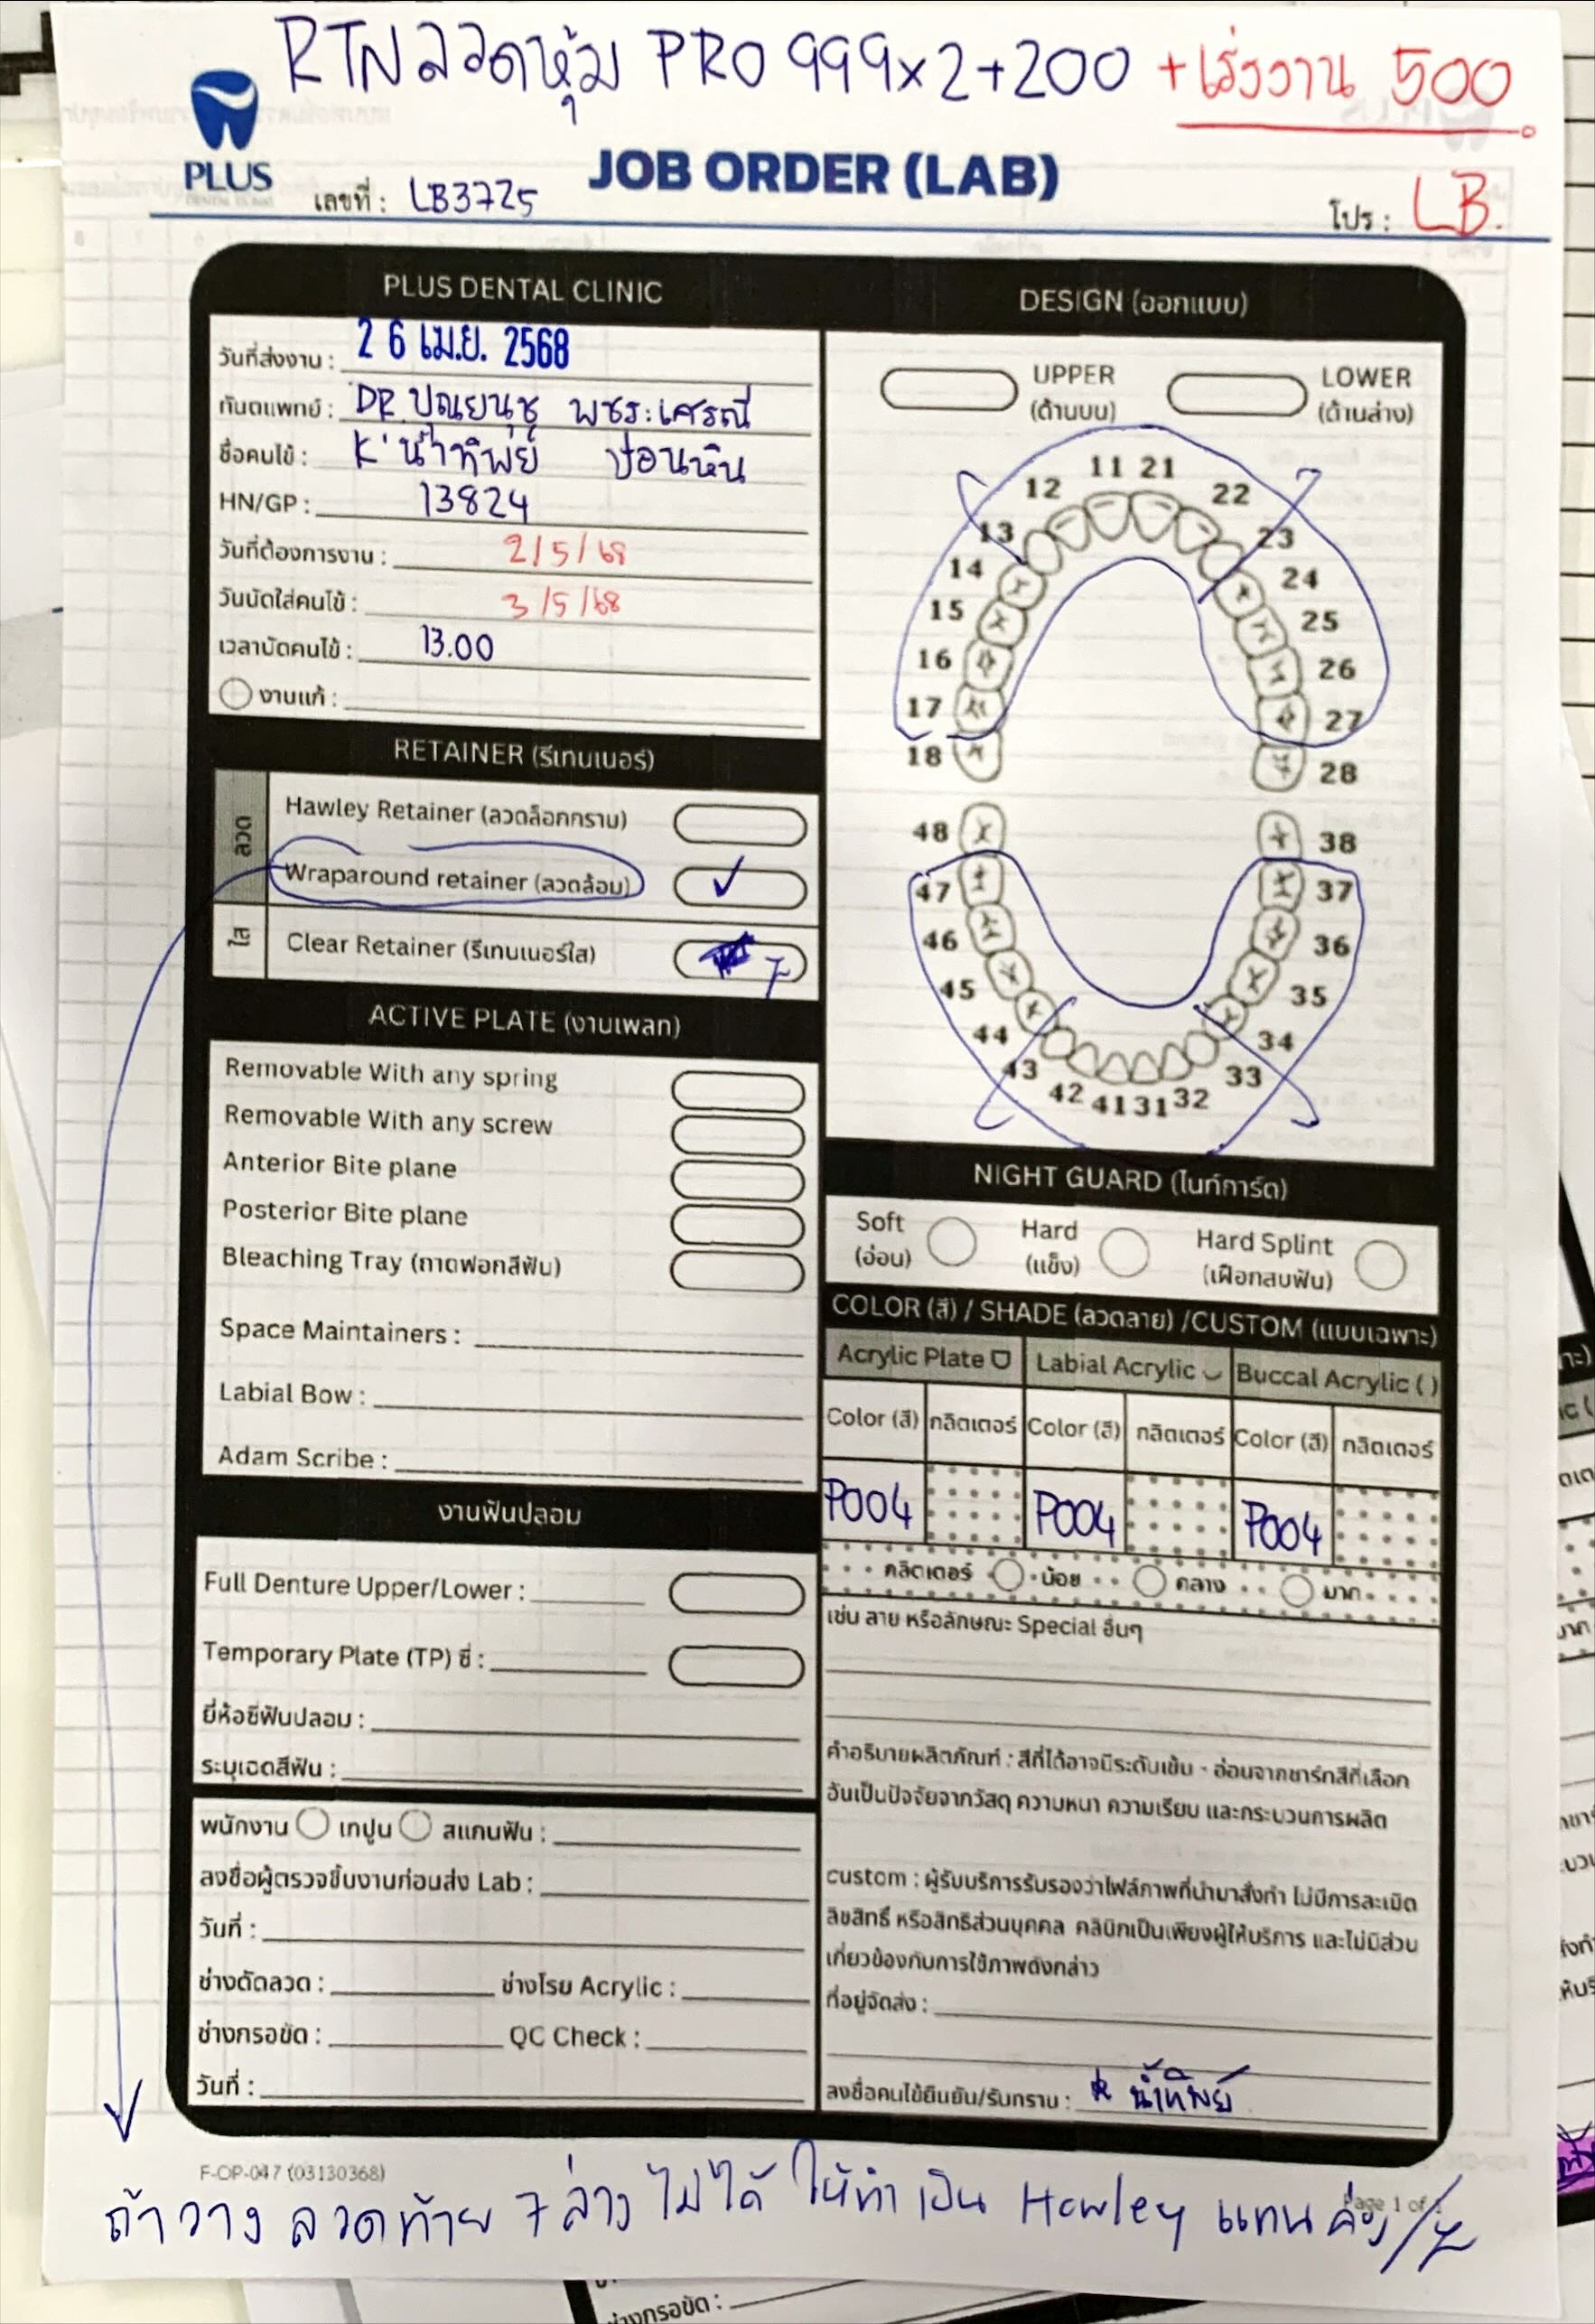 RTN ลวดหุ้ม PRO 999x2+200 +เร่งงาน 500
PLUS
เลขที่ : LB3725
JOB ORDER (LAB)
โปร : LB.
PLUS DENTAL CLINIC
วันที่ส่งงาน : 26 เม.ย. 2568
ทันตแพทย์ : DR. ปณยนุช พชระเศรณี
ชื่อคนไข้ : K'น้ำทิพย์ ป้อนหิน
HN/GP : 13824
วันที่ต้องการงาน : 2/5/68
วันนัดใส่คนไข้ : 3/5/68
เวลานัดคนไข้ : 13.00
งานแก้ :
RETAINER (รีเทนเนอร์)
ลวด
Hawley Retainer (ลวดล็อกกราม)
Wraparound retainer (ลวดล้อม) ✓
ใส
Clear Retainer (รีเทนเนอร์ใส)
ACTIVE PLATE (งานเพลท)
Removable With any spring
Removable With any screw
Anterior Bite plane
Posterior Bite plane
Bleaching Tray (ถาดฟอกสีฟัน)
Space Maintainers :
Labial Bow :
Adam Scribe :
งานฟันปลอม
Full Denture Upper/Lower :
Temporary Plate (TP) ซี่ :
ยี่ห้อซี่ฟันปลอม :
ระบุเฉดสีฟัน :
พนักงาน เทปูน สแกนฟัน :
ลงชื่อผู้ตรวจชิ้นงานก่อนส่ง Lab :
วันที่ :
ช่างดัดลวด : ช่างโรย Acrylic :
ช่างกรอขัด : QC Check :
วันที่ :
DESIGN (ออกแบบ)
UPPER
(ด้านบน)
LOWER
(ด้านล่าง)
11 21
12 22
13 23
14 24
15 25
16 26
17 27
18 28
48 38
47 37
46 36
45 35
44 34
43 33
42 41 31 32
NIGHT GUARD (ไนท์การ์ด)
Soft
(อ่อน)
Hard
(แข็ง)
Hard Splint
(เฝือกสบฟัน)
COLOR (สี) / SHADE (ลวดลาย) /CUSTOM (แบบเฉพาะ)
Acrylic Plate Labial Acrylic Buccal Acrylic ( )
Color (สี) กลิตเตอร์ Color (สี) กลิตเตอร์ Color (สี) กลิตเตอร์
P004 P004 P004
กลิตเตอร์ น้อย กลาง มาก
เช่น ลาย หรือลักษณะ Special อื่นๆ
คำอธิบายผลิตภัณฑ์ : สีที่ได้อาจมีระดับเข้ม - อ่อนจากชาร์ทสีที่เลือก
อันเป็นปัจจัยจากวัสดุ ความหนา ความเรียบ และกระบวนการผลิต
custom : ผู้รับบริการรับรองว่าไฟล์ภาพที่นำมาสั่งทำ ไม่มีการละเมิด
ลิขสิทธิ์ หรือสิทธิส่วนบุคคล คลินิกเป็นเพียงผู้ให้บริการ และไม่มีส่วน
เกี่ยวข้องกับการใช้ภาพดังกล่าว
ที่อยู่จัดส่ง :
ลงชื่อคนไข้ยืนยัน/รับทราบ : น้ำทิพย์
F-OP-047 (03130368)
Page 1 of
ถ้าวาง ลวดท้าย 7 ล่าง ไม่ได้ ให้ทำเป็น Hawley แทนค่ะ
ช่างกรอขัด :